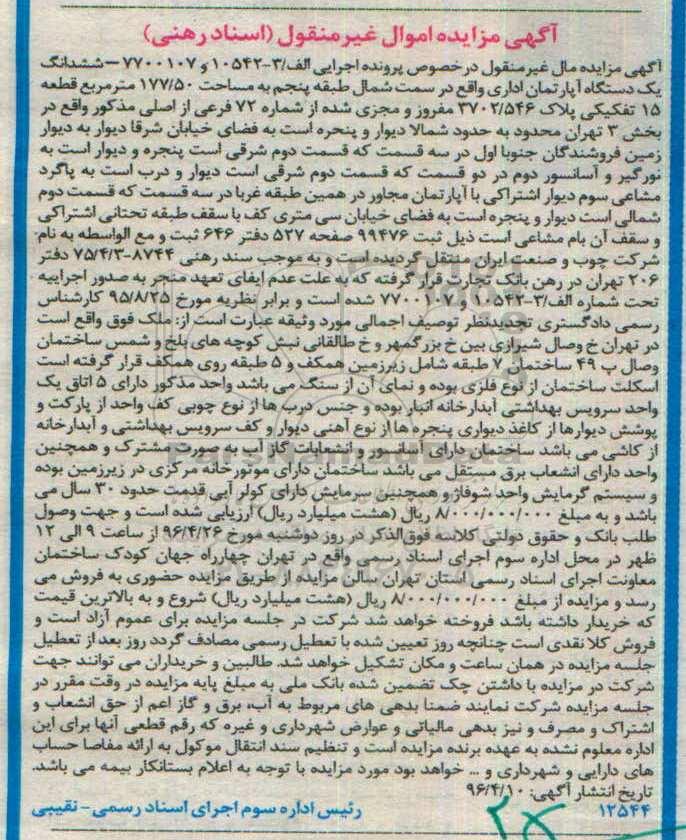 آگهی مزایده اموال غیر منقول (اسناد رهنی)
آگهی مزایده مال غیر منقول در خصوص پرونده اجرایی الف/۳-۱۰۵۴۲ و ۷۷۰۰۱۰۷ - ششدانگ
یک دستگاه آپارتمان اداری واقع در سمت شمال طبقه پنجم به مساحت ۱۷۷/۵۰ مترمربع قطعه
۱۵ تفکیکی پلاک ۳۷۰۲/۵۴۶ مفروز و مجزی شده از شماره ۷۲ فرعی از اصلی مذکور واقع در
بخش ۳ تهران محدود به حدود شمالا دیوار و پنجره است به فضای خیابان شرقا دیوار به دیوار
زمین فروشندگان جنوبا اول در سه قسمت که قسمت دوم شرقی است پنجره و دیوار است به
نورگیر و آسانسور دوم در دو قسمت که قسمت دوم شرقی است دیوار و درب است به پاگرد
مشاعی سوم دیوار اشتراکی با آپارتمان مجاور در همین طبقه غربا در سه قسمت که قسمت دوم
شمالی است دیوار و پنجره است به فضای خیابان سی متری کف با سقف طبقه تحتانی اشتراکی
و سقف آن بام مشاعی است ذیل ثبت ۹۹۴۷۶ صفحه ۵۲۷ دفتر ۶۴۶ ثبت و مع الواسطه به نام
شرکت چوب و صنعت ایران منتقل گردیده است و به موجب سند رهنی ۸۷۴۴-۷۵/۴/۳ دفتر
۲۰۶ تهران در رهن بانک تجارت قرار گرفته که به علت عدم ایفای تعهد منجر به صدور اجراییه
تحت شماره الف/۳-۱۰۵۴۲ و ۷۷۰۰۱۰۷ شده است و برابر نظریه مورخ ۹۵/۸/۲۵ کارشناس
رسمی دادگستری تجدیدنظر توصیف اجمالی مورد وثیقه عبارت است از: ملک فوق واقع است
در تهران خ وصال شیرازی بین خ بزرگمهر و خ طالقانی نبش کوچه های بلخ و شمس ساختمان
وصال پ ۴۹ ساختمان ۷ طبقه شامل زیرزمین همکف و ۵ طبقه روی همکف قرار گرفته است
اسکلت ساختمان از نوع فلزی بوده و نمای آن از سنگ می باشد واحد مذکور دارای ۵ اتاق یک
واحد سرویس بهداشتی آبدارخانه انبار بوده و جنس درب ها از نوع چوبی کف واحد از پارکت و
پوشش دیوارها از کاغذ دیواری پنجره ها از نوع آهنی دیوار و کف سرویس بهداشتی و آبدارخانه
از کاشی می باشد ساختمان دارای آسانسور و انشعابات گاز آب به صورت مشترک و همچنین
واحد دارای انشعاب برق مستقل می باشد ساختمان دارای موتورخانه مرکزی در زیرزمین بوده
و سیستم گرمایش واحد شوفاژ و همچنین سرمایش دارای کولر آبی قدمت حدود ۳۰ سال می
باشد و به مبلغ ۸/۰۰۰/۰۰۰/۰۰۰ ریال (هشت میلیارد ریال) ارزیابی شده است و جهت وصول
طلب بانک و حقوق دولتی کلاسه فوق الذکر در روز دوشنبه مورخ ۹۶/۴/۲۶ از ساعت ۹ الی ۱۲
ظهر در محل اداره سوم اجرای اسناد رسمی واقع در تهران چهارراه جهان کودک ساختمان
معاونت اجرای اسناد رسمی استان تهران سالن مزایده از طریق مزایده حضوری به فروش می
رسد و مزایده از مبلغ ۸/۰۰۰/۰۰۰/۰۰۰ ریال (هشت میلیارد ریال) شروع و به بالاترین قیمت
که خریدار داشته باشد فروخته خواهد شد شرکت در جلسه مزایده برای عموم آزاد است و
فروش کلا نقدی است چنانچه روز تعیین شده با تعطیل رسمی مصادف گردد روز بعد از تعطیل
جلسه مزایده در همان ساعت و مکان تشکیل خواهد شد. طالبین و خریداران می توانند جهت
شرکت در مزایده با داشتن چک تضمین شده بانک ملی به مبلغ پایه مزایده در وقت مقرر در
جلسه مزایده شرکت نمایند ضمنا بدهی های مربوط به آب، برق و گاز اعم از حق انشعاب و
اشتراک و مصرف و نیز بدهی مالیاتی و عوارض شهرداری و غیره که رقم قطعی آنها برای این
اداره معلوم نشده به عهده برنده مزایده است و تنظیم سند انتقال موکول به ارائه مفاصا حساب
های دارایی و شهرداری و ... خواهد بود مورد مزایده با توجه به اعلام بستانکار بیمه می باشد.
تاریخ انتشار آگهی: ۹۶/۴/۱۰
۱۲۵۴۴ رئیس اداره سوم اجرای اسناد رسمی - نقیبی